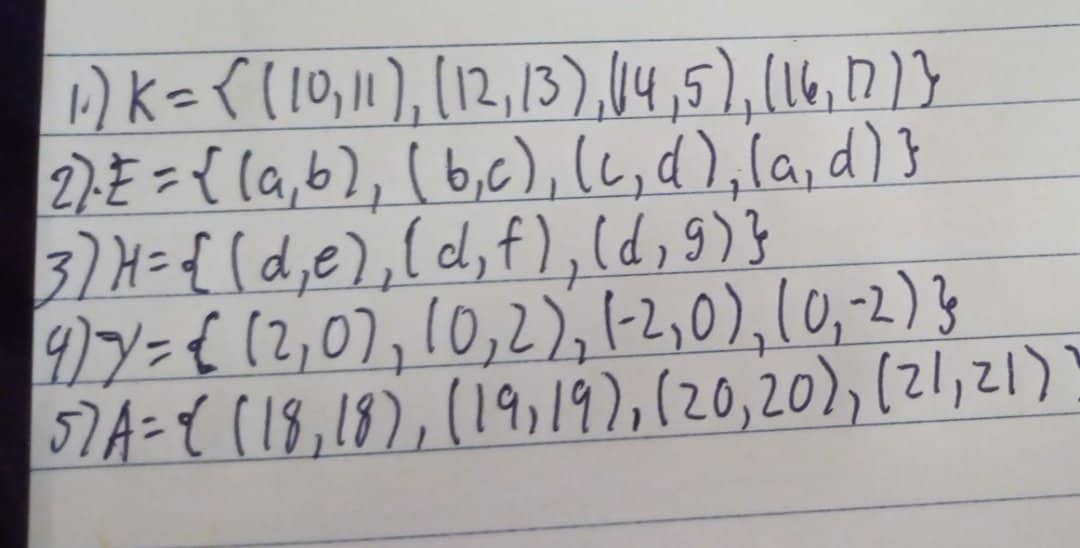 1.) K = { (10,11), (12,13), (14,5), (16,17) }
2). E = { (a,b), (b,c), (c,d), (a,d) }
3) H = { (d,e), (d,f), (d,g) }
4) Y = { (2,0), (0,2), (-2,0), (0,-2) }
5) A = { (18,18), (19,19), (20,20), (21,21) }